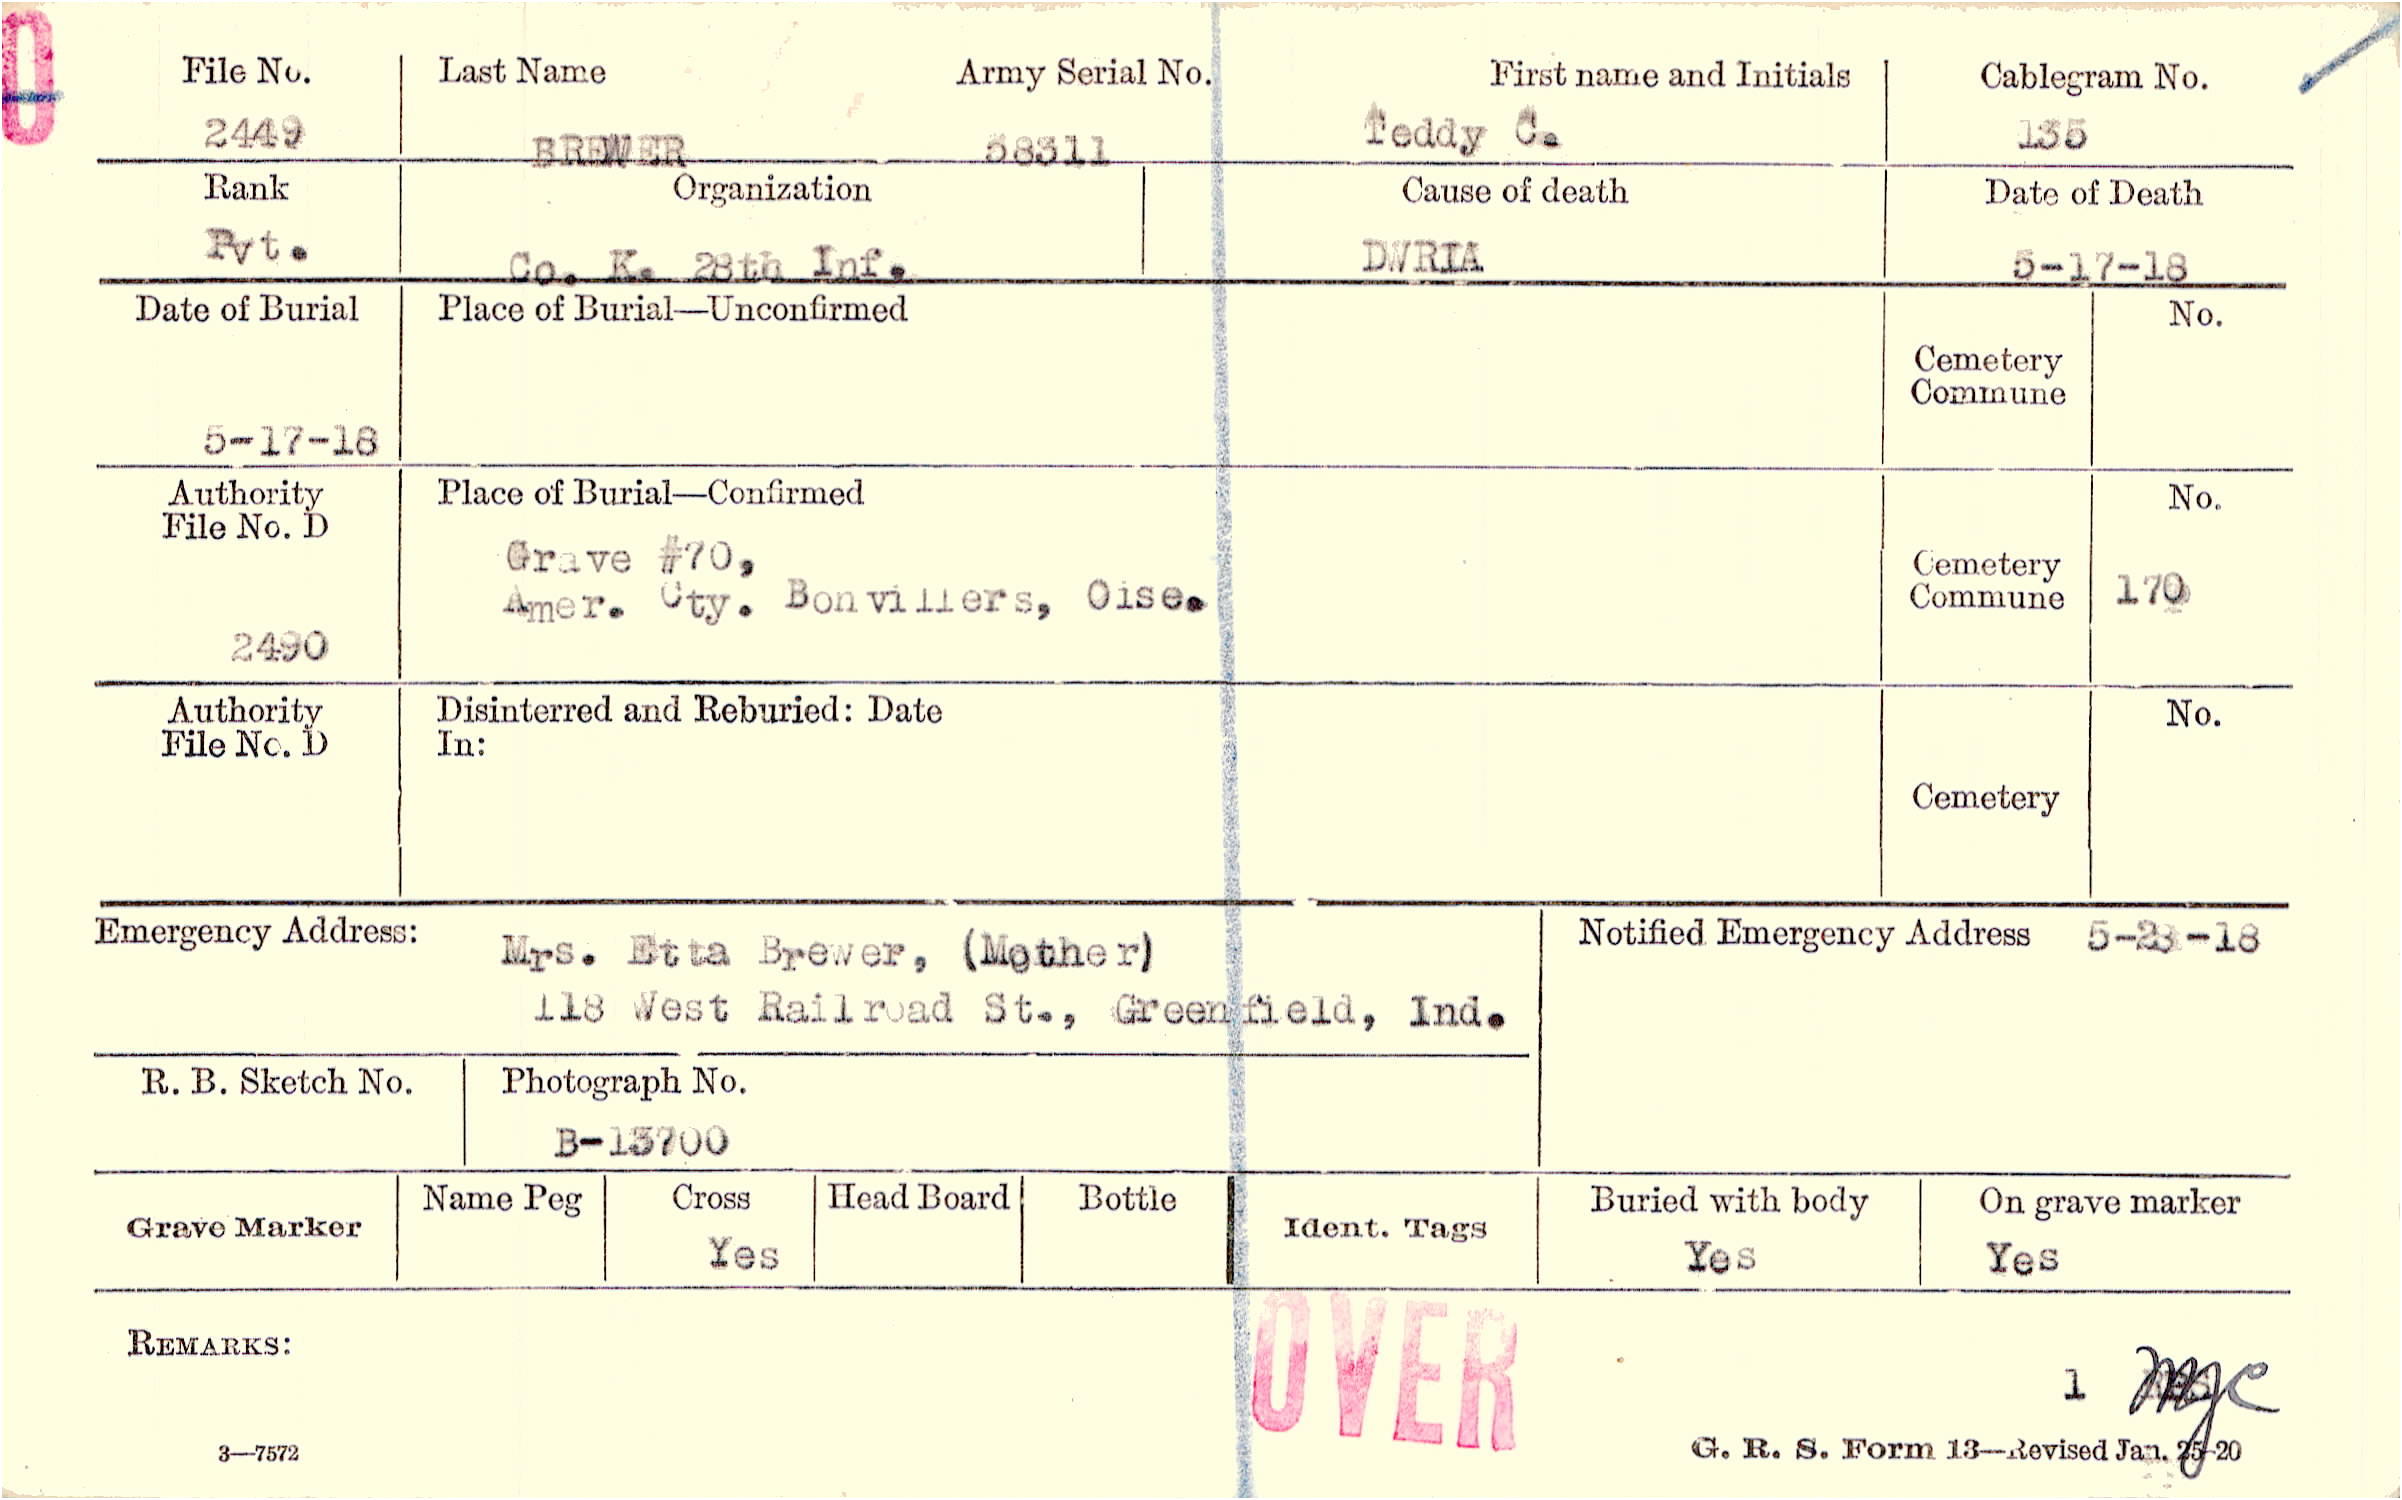 File No. Last Name Army Serial No. First name and Initials Cablegram No.
2449 BREWER 58311 Teddy C. 135
Rank Organization Cause of death Date of Death
Pvt. Co. K. 28th Inf. DWRIA 5-17-18
Date of Burial Place of Burial—Unconfirmed No.
Cemetery
Commune
5-17-18
Authority Place of Burial—Confirmed No.
File No. D
Grave #70,
Cemetery
Amer. Cty. Bonvillers, Oise. Commune 170
2490
Authority Disinterred and Reburied: Date No.
File No. D In:
Cemetery
Emergency Address: Mrs. Etta Brewer, (Mother) Notified Emergency Address 5-23-18
118 West Railroad St., Greenfield, Ind.
R. B. Sketch No. Photograph No.
B-13700
Grave Marker Name Peg Cross Head Board Bottle Ident. Tags Buried with body On grave marker
Yes Yes Yes
OVER
REMARKS:
1
3—7572 G. R. S. Form 13—Revised Jan. 25-20